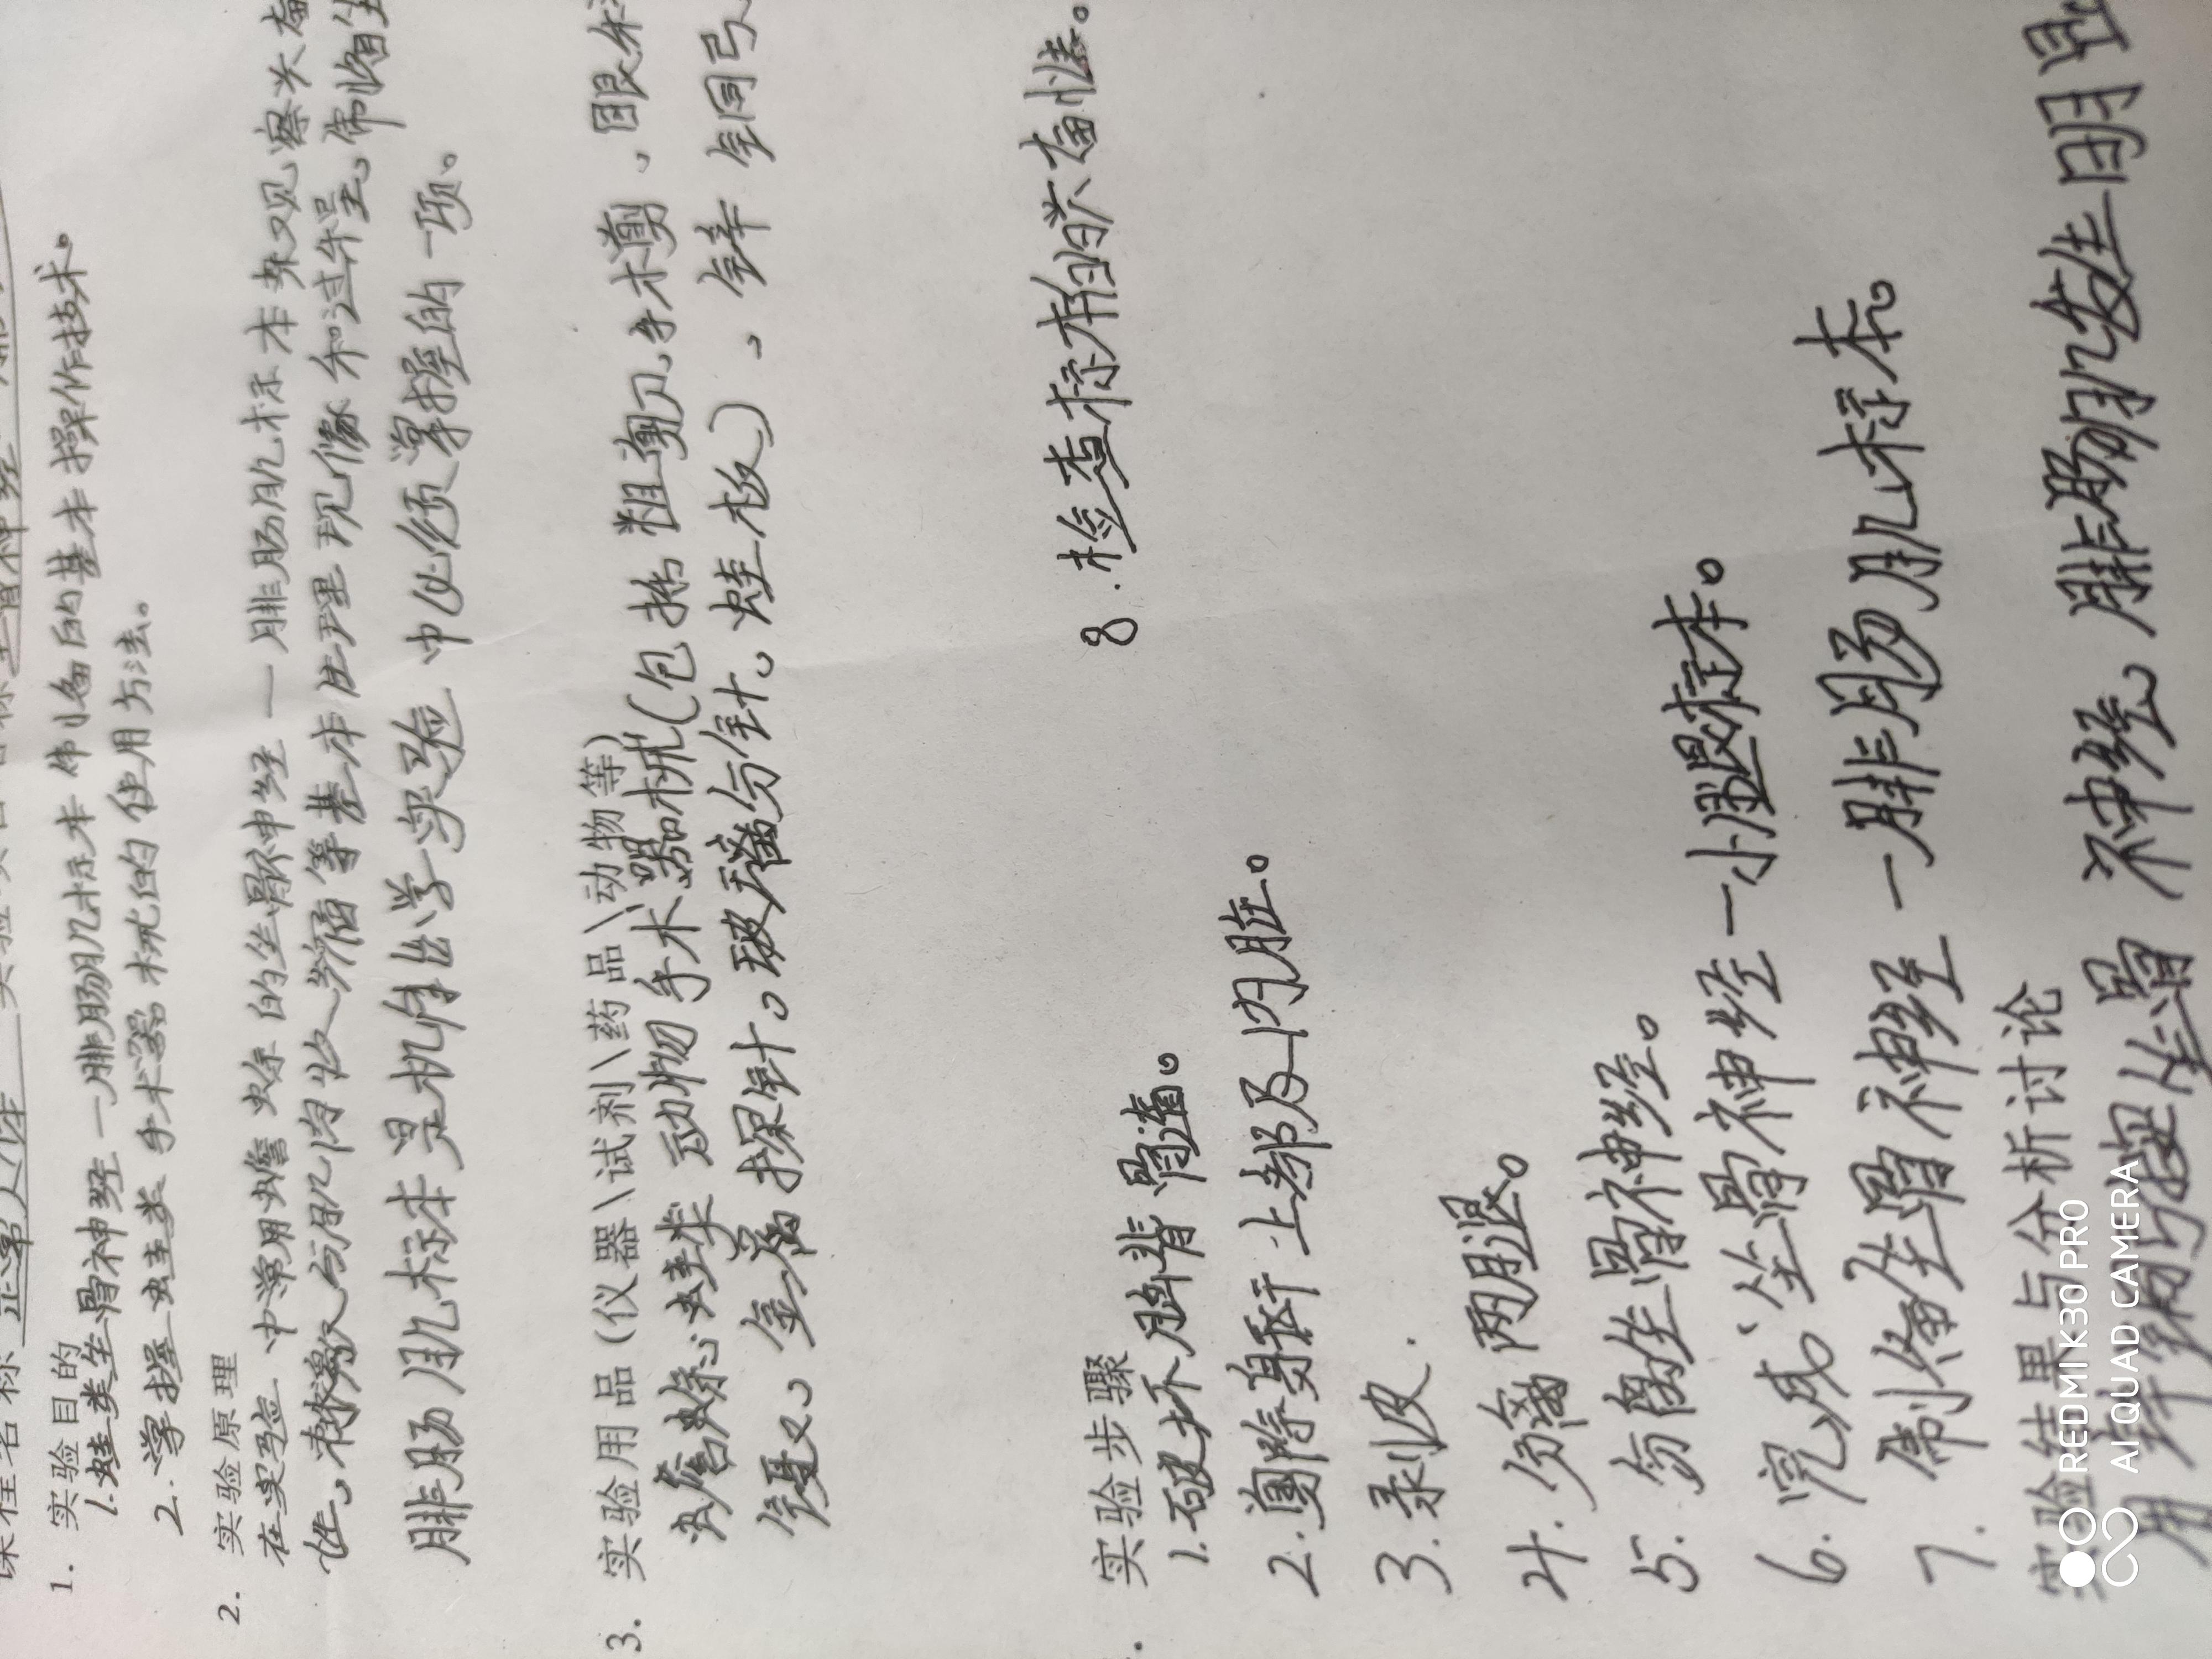 课程名称 正常人体 实验项目名称 坐骨神经
1. 实验目的
1.蛙类坐骨神经一腓肠肌标本制备的基本操作技术。
2.学握蛙类手术器械的使用方法。
2. 实验原理
在实验中常用蟾蜍的坐骨神经一腓肠肌标本来观察兴奋
性、刺激与肌肉收缩等基本生理现像和过程,制备坐
腓肠肌标本是机能学实验中必须掌握的一项。
3. 实验用品(仪器\试剂\药品\动物等)
蟾蜍、蛙类动物手术器械(包括粗剪刀、手术剪、眼科
镊、金属探针。玻璃分针、蛙板)、锌铜弓、
实验步骤
1.破坏脑脊髓。
2.剪除身躯干上部及内脏。
3.剥皮.
4.分离两腿。
5.分离坐骨神经。
6.完成坐骨神经一小腿标本。
7.制备坐骨神经一腓肠肌标本。
8.检查标本的兴奋性。
实验结果与分析讨论
用锌铜弓接坐骨神经、腓肠肌发生明显
REDMI K30 PRO
AI QUAD CAMERA